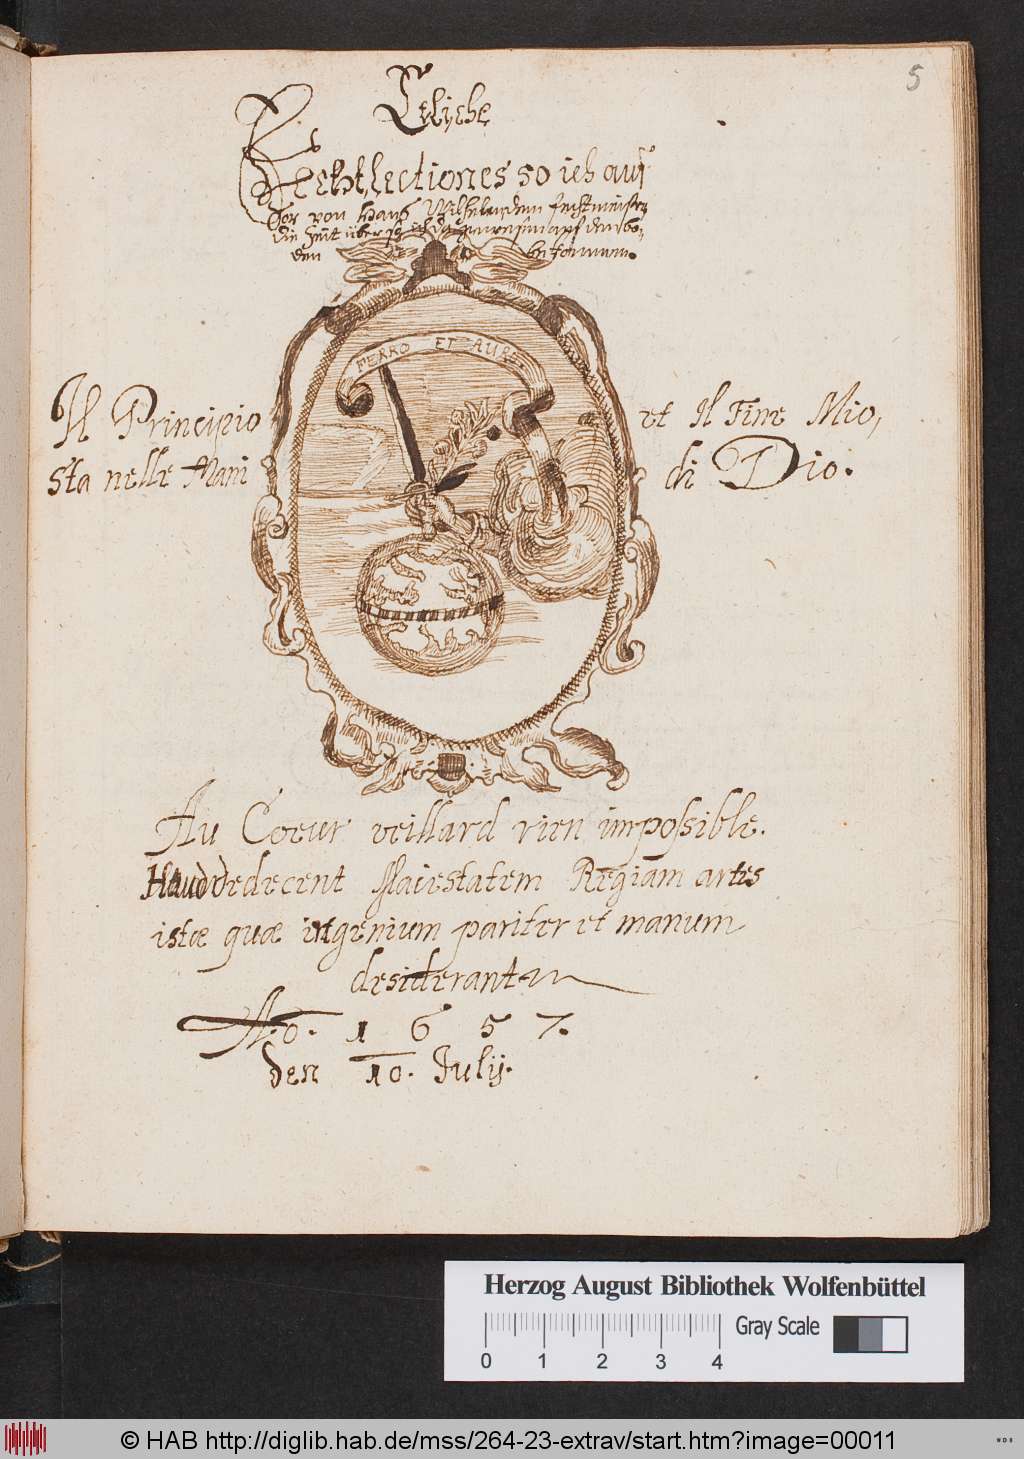 5
Etliche
Fecht,lectiones so ich auf
von Hans Wilhelm dem fechtmeister
die Zeit über so ich
den bekommen.
FERRO ET AURO
Il Principio et Il Fine Mio,
sta nelle Mani di Dio.
Au Coeur veillard rien impossible.
Haud dedecent Maiestatem Regiam artes
istæ quæ ingenium pariter et manum
desiderant
Ao. 1 6 5 7.
den 10. Julij.
Herzog August Bibliothek Wolfenbüttel
Gray Scale
0 1 2 3 4
© HAB http://diglib.hab.de/mss/264-23-extrav/start.htm?image=00011